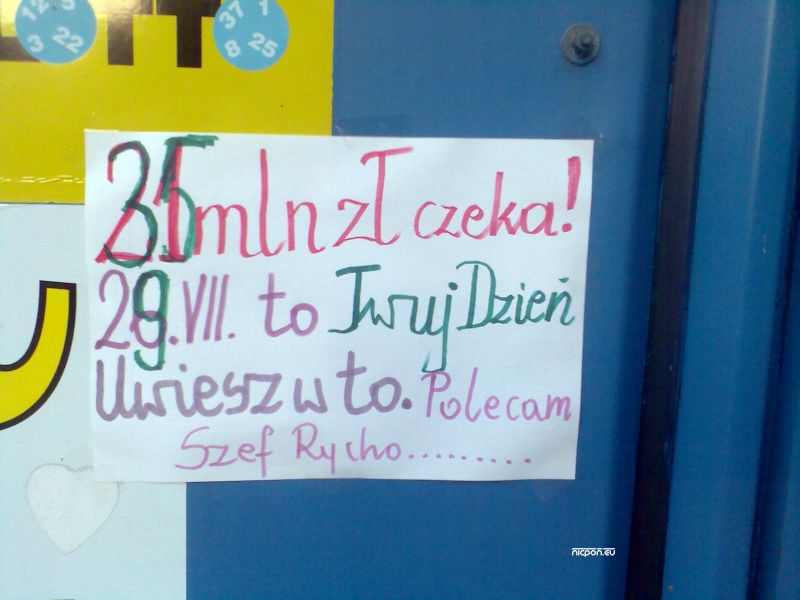 12 5
3 22
37 1
8 25
35 mln zł czeka!
29.VII. to Twuj Dzień
Uwiesz w to. Polecam
Szef Rycho.........
nicpon.eu